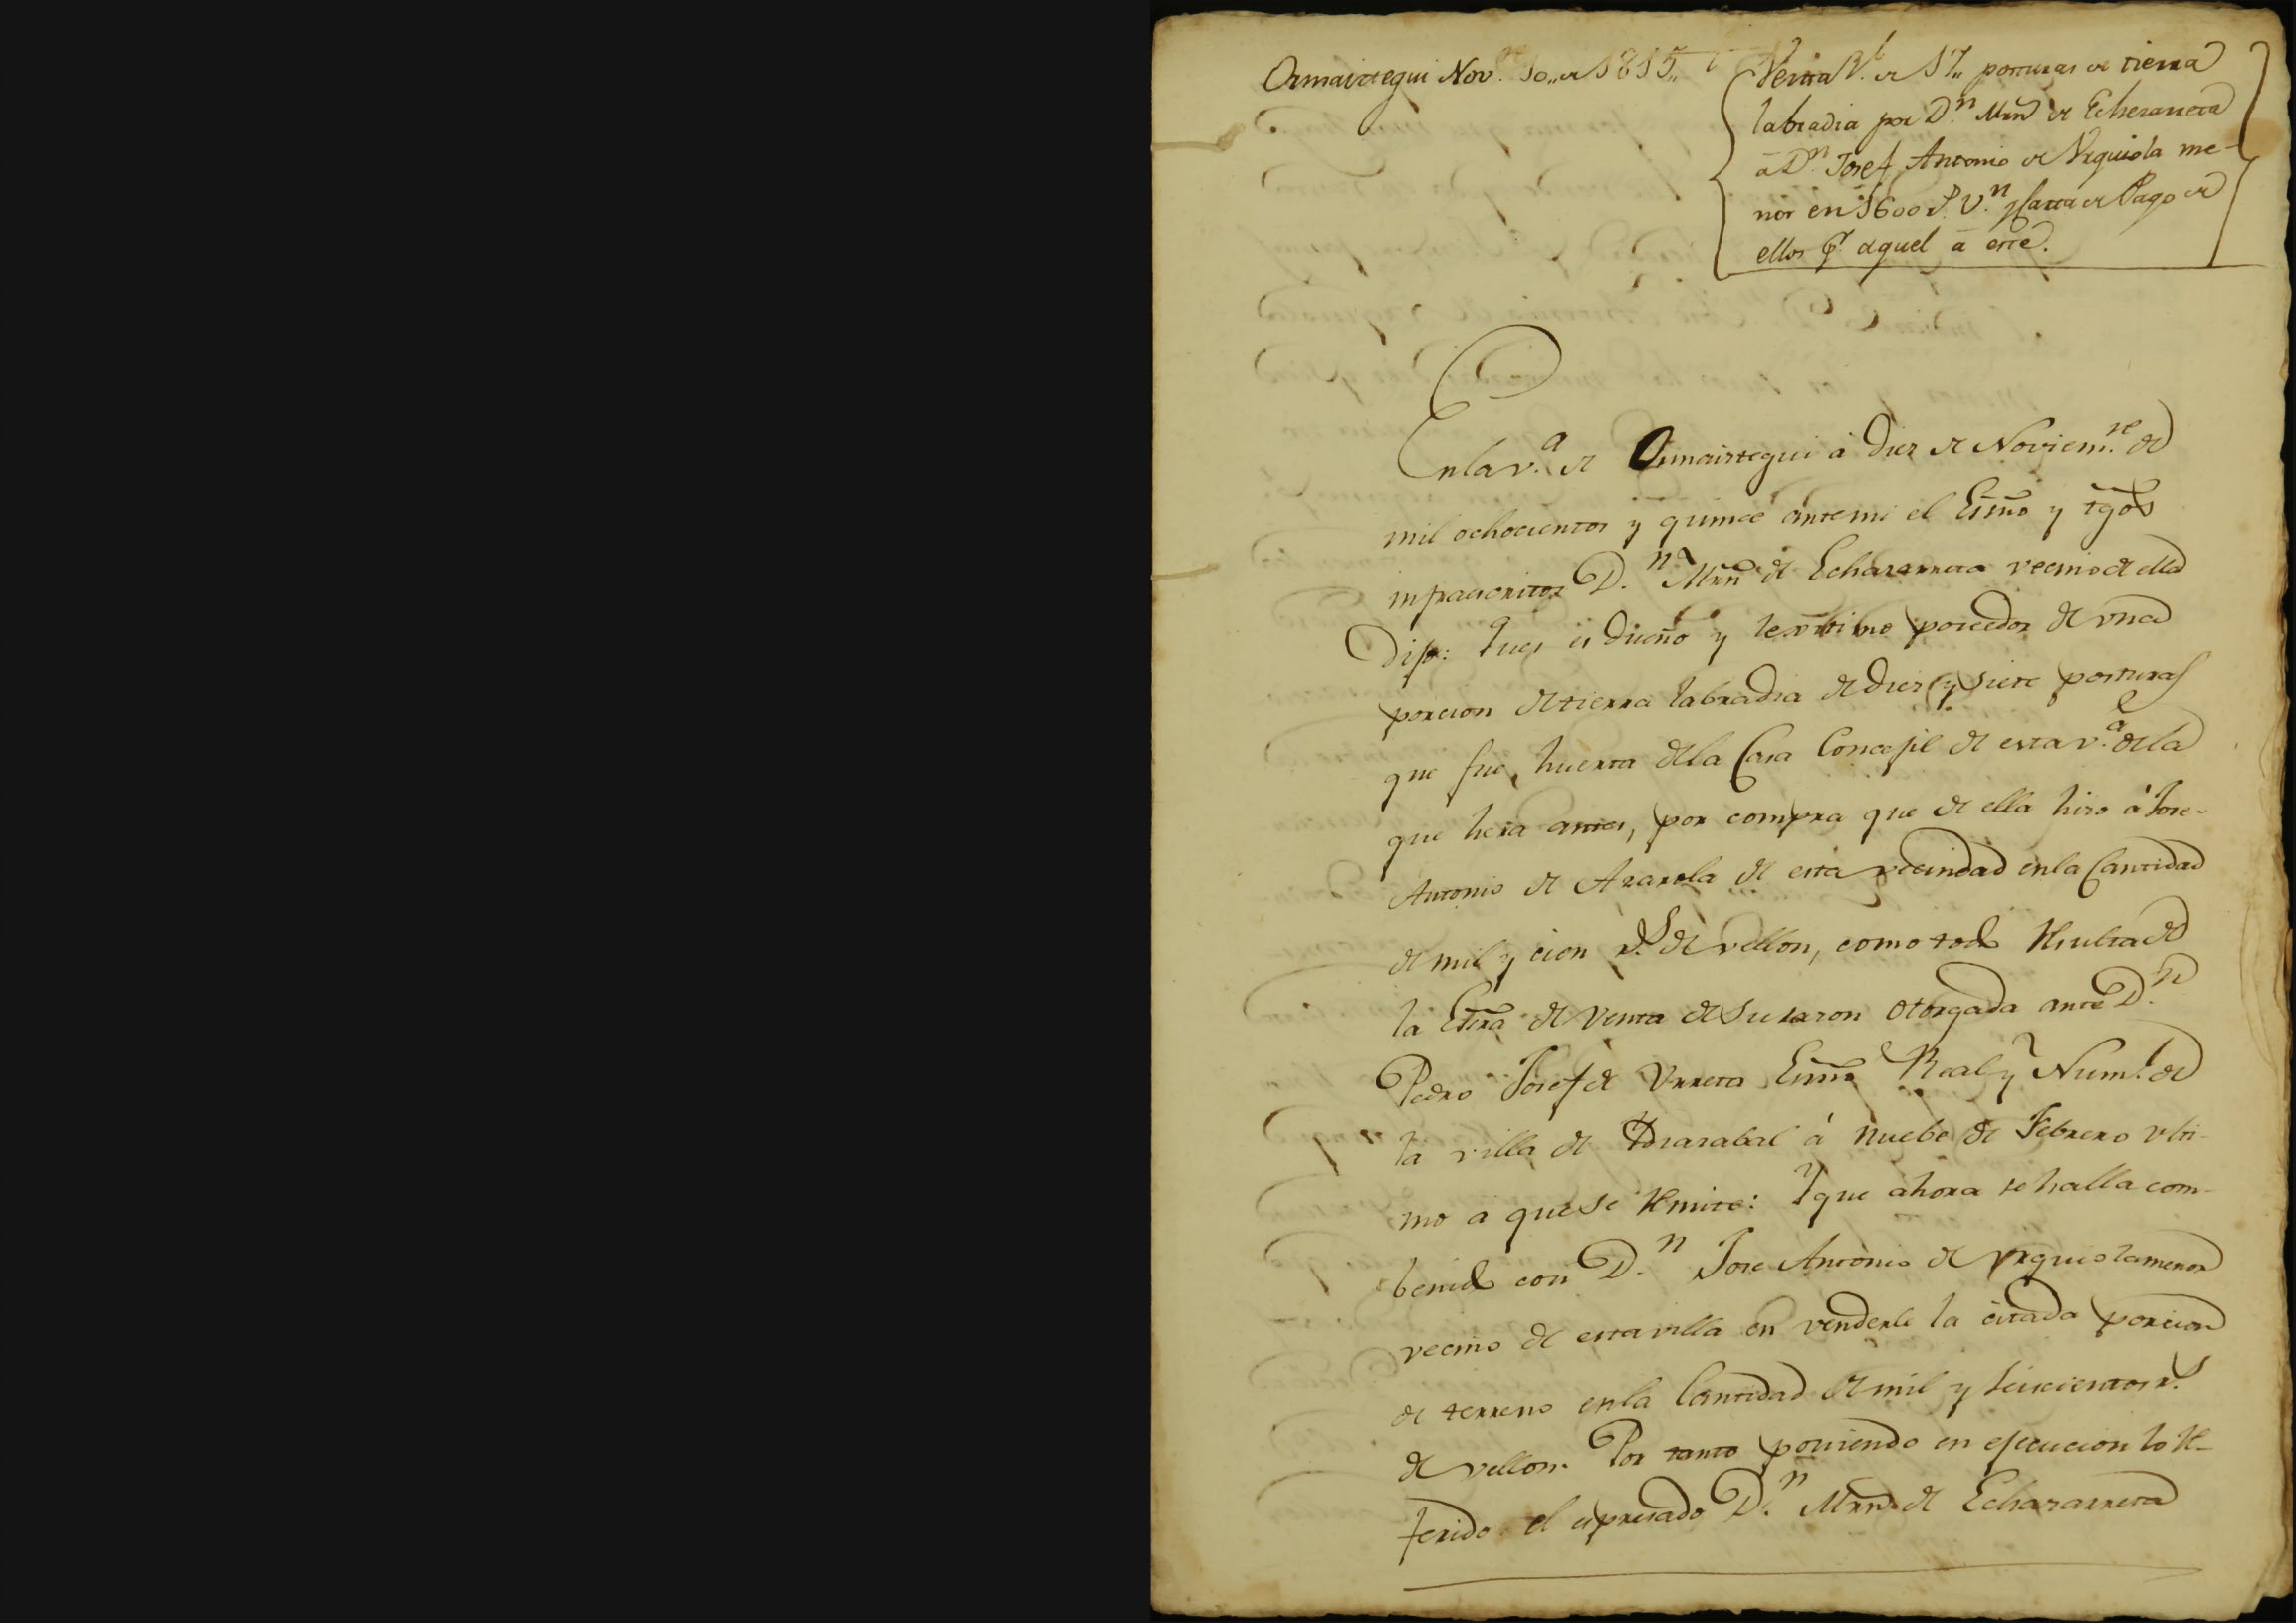 Ormaiztegui Nov.re 10,, de 1815,,
Venta Rl. de 17,, posturas de tierra
labradia por D.n Mrn de Echezarreta
a D.n Josef Antonio de Urquiola me-
nor en 1600 rs. V.n y Carta de Pago de
ellos pr. aquel a este.
En la v.a de Ormaiztegui á Diez de Noviem.re de
mil ochocientos y quince ante mi el Essno y tgos
infrascritos D.n Mrn de Echazarreta vecino de ella
Dijo: Que es Dueño y lexitimo poseedor de una
porcion de tierra labradia de diez y siete posturas
que fue huerta de la Casa Concejil de esta v.a de la
que hera antes, por compra que de ella hizo á Jose
Antonio de Azarola de esta vecindad en la Cantidad
de mil y cien rs. de vellon, como todo resulta de
la Esra de Venta de su razon otorgada ante D.n
Pedro Josef de Urreta Essno Real y Num.l de
la villa de Ydiazabal á nuebe de Febrero ulti-
mo a que se remite: Y que ahora se halla com-
benido con D.n Jose Antonio de Urquiola menor
vecino de esta villa en venderle la citada porcion
de terreno en la Cantidad de mil y seiscientos rs.
de vellon. Por tanto poniendo en ejecucion lo re-
ferido el expresado D.n Mrn de Echazarreta